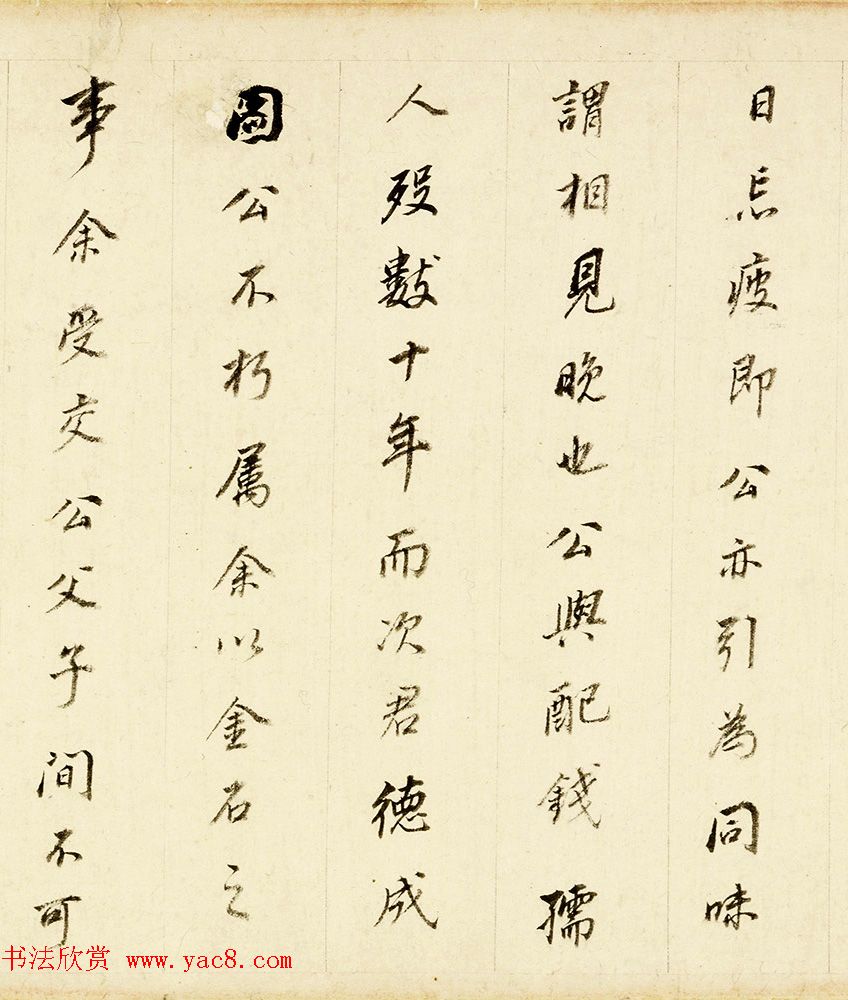 日忘疲即公亦引為同味
謂相見晚也公與配錢孺
人歿數十年而次君德成
圖公不朽属余以金石之
事余受交公父子間不可
书法欣赏 www.yac8.com